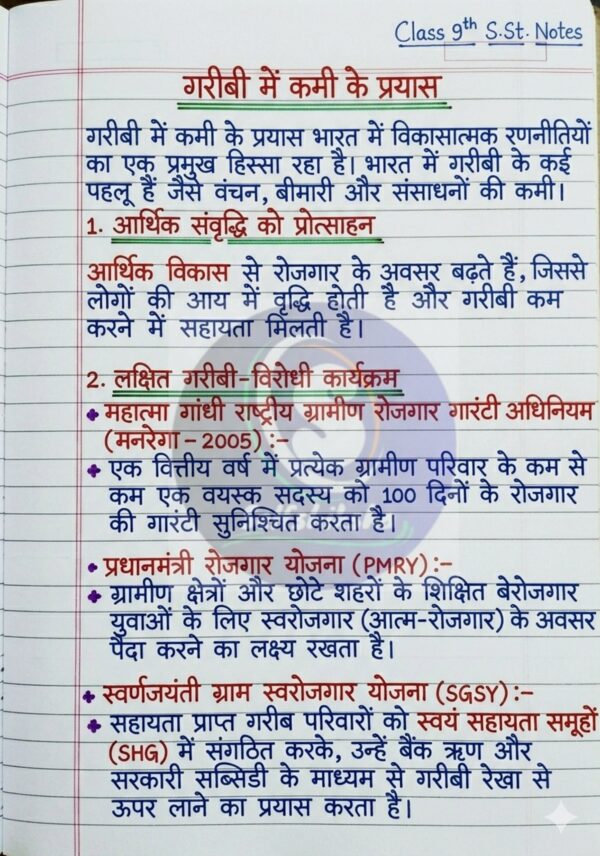 Class 9th S.St. Notes
गरीबी में कमी के प्रयास
गरीबी में कमी के प्रयास भारत में विकासात्मक रणनीतियों
का एक प्रमुख हिस्सा रहा है। भारत में गरीबी के कई
पहलू हैं जैसे वंचन, बीमारी और संसाधनों की कमी।
1. आर्थिक संवृद्धि को प्रोत्साहन
आर्थिक विकास से रोजगार के अवसर बढ़ते हैं, जिससे
लोगों की आय में वृद्धि होती है और गरीबी कम
करने में सहायता मिलती है।
2. लक्षित गरीबी-विरोधी कार्यक्रम
महात्मा गांधी राष्ट्रीय ग्रामीण रोजगार गारंटी अधिनियम
(मनरेगा - 2005) :-
एक वित्तीय वर्ष में प्रत्येक ग्रामीण परिवार के कम से
कम एक वयस्क सदस्य को 100 दिनों के रोजगार
की गारंटी सुनिश्चित करता है।
• प्रधानमंत्री रोजगार योजना (PMRY) :-
ग्रामीण क्षेत्रों और छोटे शहरों के शिक्षित बेरोजगार
युवाओं के लिए स्वरोजगार (आत्म-रोजगार) के अवसर
पैदा करने का लक्ष्य रखता है।
स्वर्णजयंती ग्राम स्वरोजगार योजना (SGSY) :-
सहायता प्राप्त गरीब परिवारों को स्वयं सहायता समूहों
(SHG) में संगठित करके, उन्हें बैंक ऋण और
सरकारी सब्सिडी के माध्यम से गरीबी रेखा से
ऊपर लाने का प्रयास करता है।